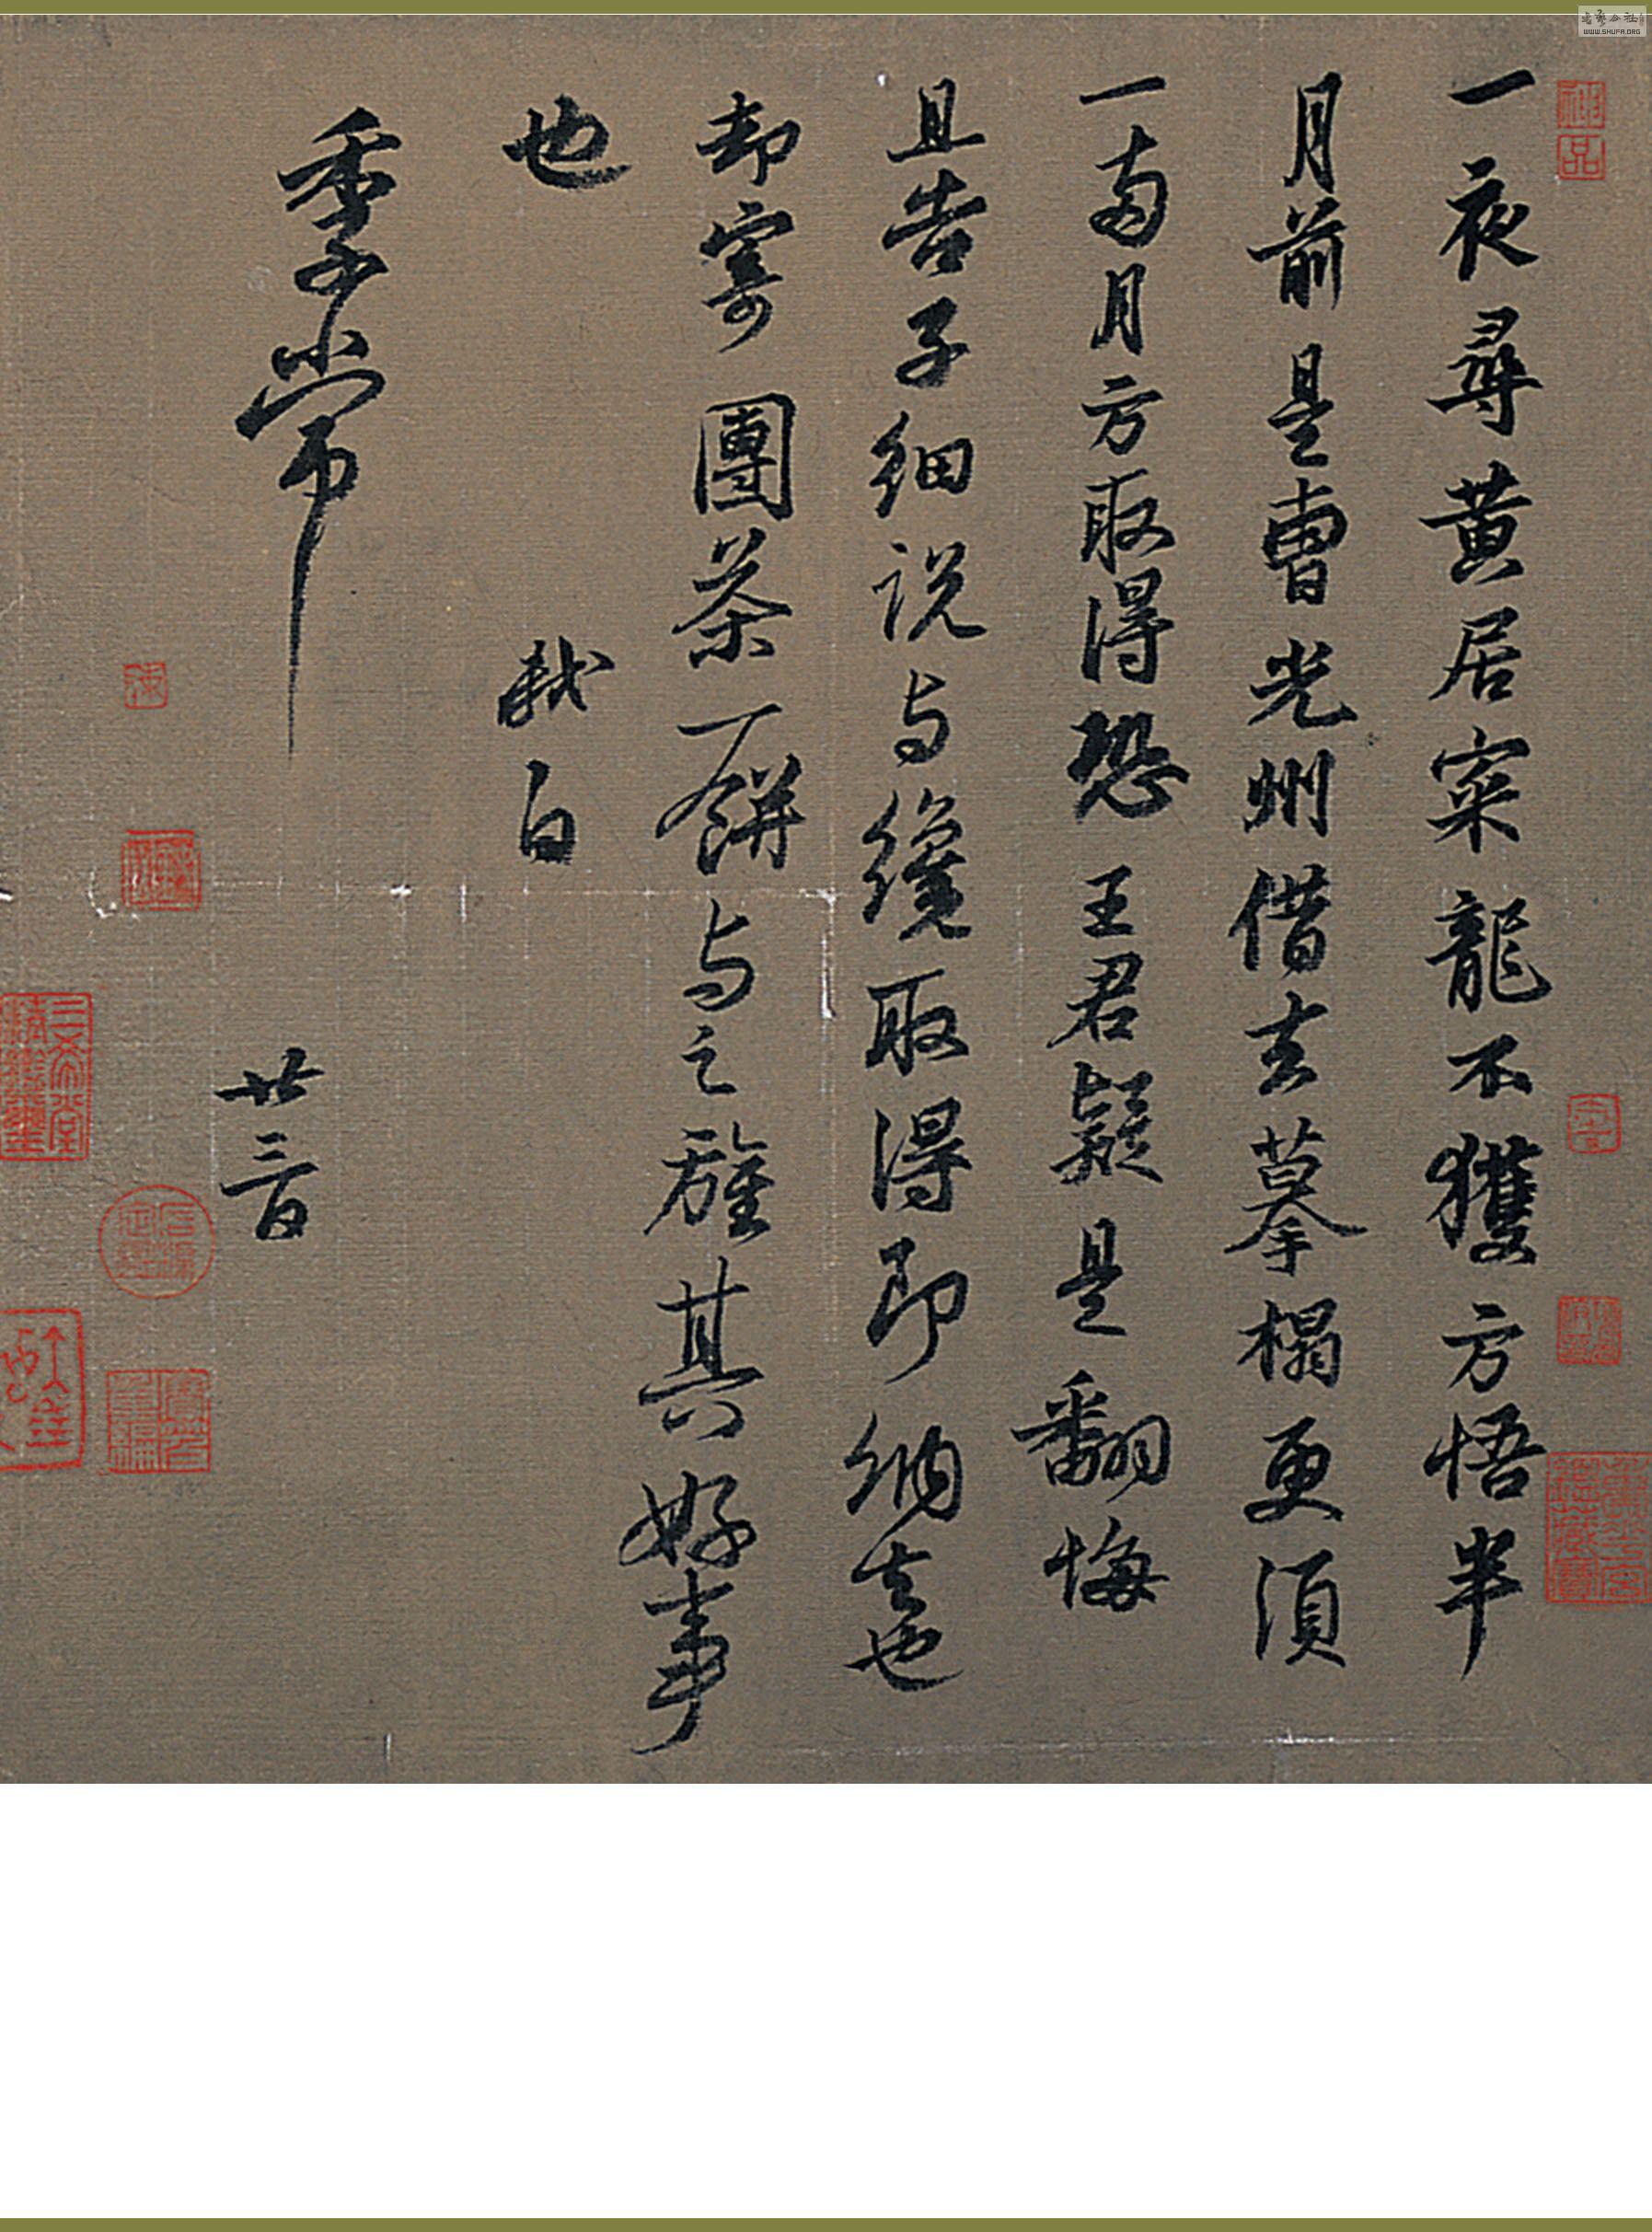 一夜尋黄居寀龍不獲方悟半
月前是曹光州借去摹榻更須
一兩月方取得恐王君疑是翻悔
且告子細説与纔取得即納去也
却寄團茶一餅与之旌其好事
也 軾白
季常
廿三日
神品
WWW.SHUFA.ORG